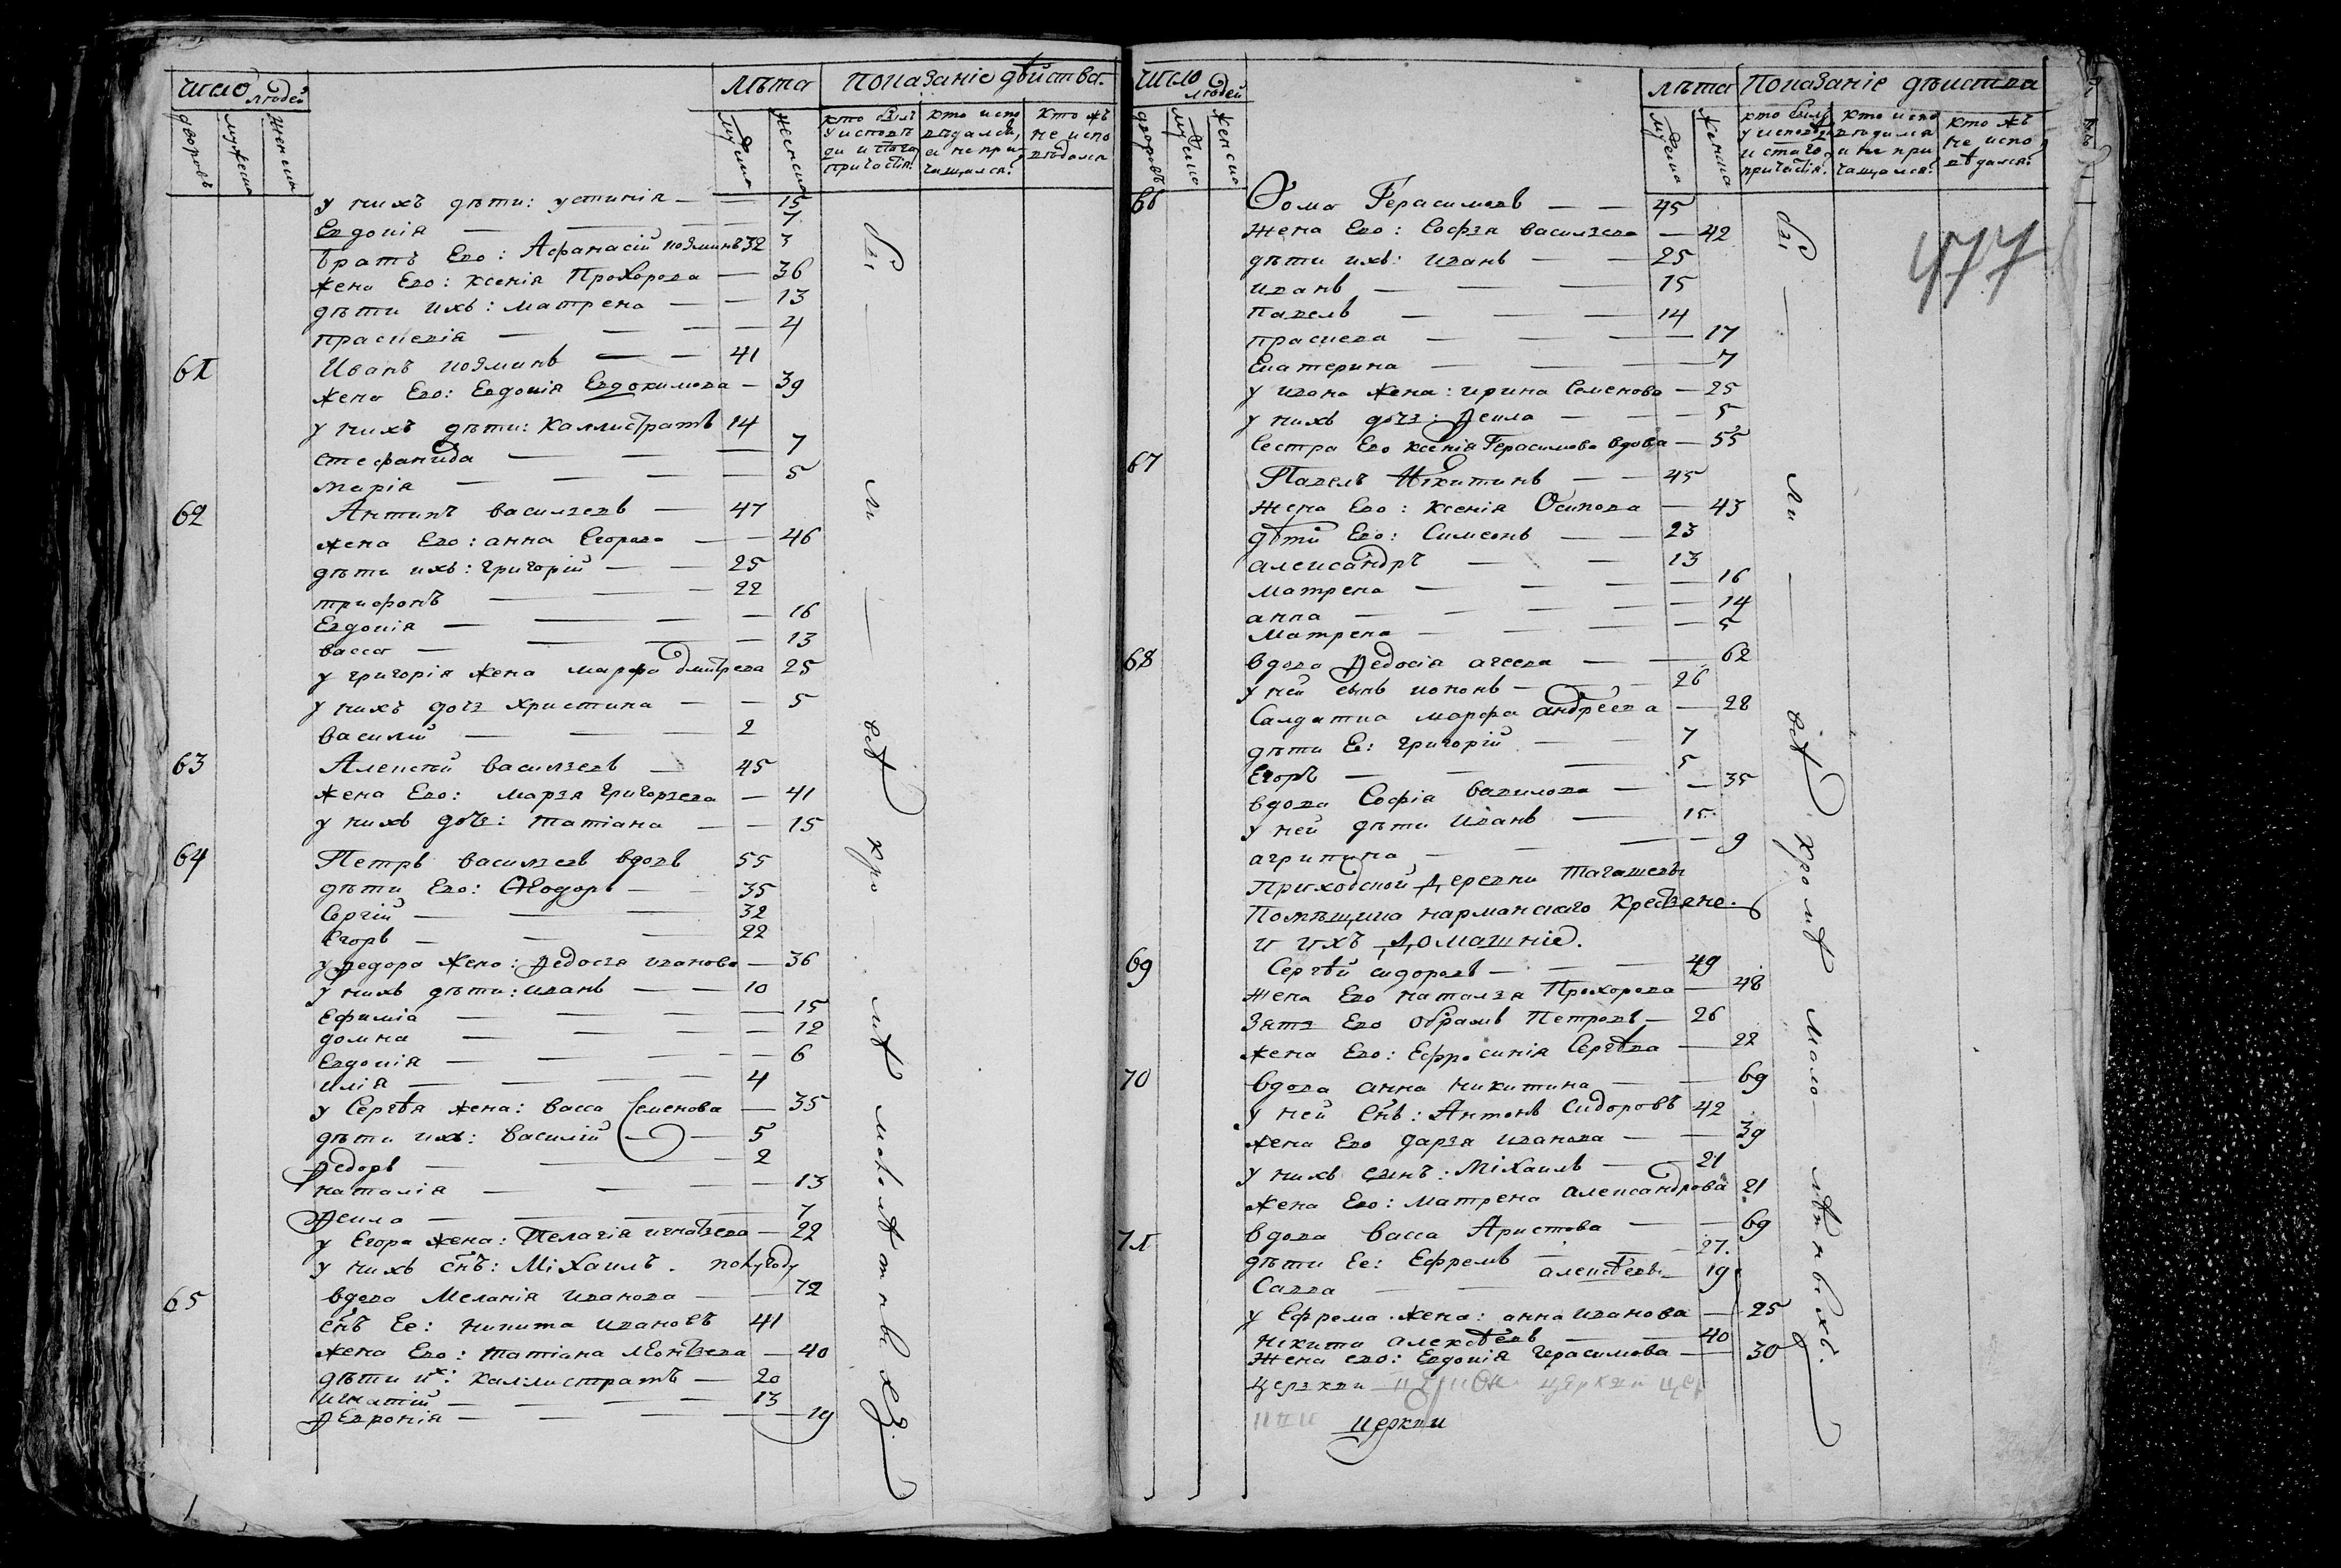 число людей
лѣта
показаніе дѣйства.
дворовъ
мужеска
женска
мужеска
женска
кто былъ у исповѣди и стаго причастія.
кто исповѣдался, а не причащался.
кто жъ не исповѣдался
у нихъ дѣти: устинія — — 15
Евдокія — — — 7
братъ Его: Афанасій козминъ 32 3
жена Его: ксенія Прохорова — 36
дѣти ихъ: матрена — — 13
праскевія — — — 4
61 Иванъ козминъ — — 41
жена Его: Евдокія Евдокимова — 39
у нихъ дѣти: каллистратъ 14
стефанида — — — 7
марія — — — 5
62 Антипъ васильевъ — 47
жена Его: анна Егорова — — 46
дѣти ихъ: григорій — — 25
трифонъ — — — 22
Евдокія — — — 16
васса — — — 13
у григорія жена марфа дмитрева 25
у нихъ дочь христина — — 5
василій — — — 2
63 Алексѣй васильевъ — 45
жена Его: марья григорьева — 41
у нихъ дочь: татіана — — 15
64 Петръ васильевъ вдовъ 55
дѣти Его: Ѳеодоръ — — 35
Сергій — — — 32
Егоръ — — — 22
у федора жена: федосья иванова — 36
у нихъ дѣти: иванъ — — 10
Ефимія — — — 15
домна — — — 12
Евдокія — — — 6
илія — — — 4
у Сергѣя жена: васса Семенова — 35
дѣти ихъ: василій — 5
федоръ — — — 2
наталія — — — 13
фекла — — — 7
у Егора жена: Пелагія игнатьева — 22
у нихъ снъ: Міхаилъ. полугоду
65 вдова Меланія иванова — — 72
снъ Ее: никита ивановъ 41
жена Его: татіана леонтьева — 40
дѣти их: каллистратъ — 20
игнатій — — — 13
февронія — — — 19
бы — ли — всѣ кро мѣ малолѣтныхъ
число людей
лѣта
Показаніе дѣиства
дворовъ
мужеска
женска
мужеска
женска
кто былъ у исповѣди и стаго причастія.
кто исповѣдался и не причащался.
кто жъ не исповѣдался.
477
66 Ѳома Герасимовъ — — 45
жена Его: Софья васильева — 42
дѣти ихъ: иванъ — — 25
иванъ — — — 15
павелъ — — — 14
праскева — — — 17
Екатерина — — — 7
у ивана жена: ирина Семенова — 25
у нихъ дочь: фекла — — 5
Сестра Его ксенія Герасимова вдова — 55
67 Павелъ Никитинъ — — 45
жена Его: ксенія Осипова — 43
дѣти Его: Симеонъ — — 23
александръ — — 13
матрена — — — 16
анна — — — 14
Матрена — — — 5
68 вдова федосія агеева — — 62
у ней сынъ кононъ — — 26
Салдатка марфа андреева — 28
дѣти Ее: григорій — — 7
Егоръ — — — 5
вдова Софія вавилова — — 35
у ней дѣти иванъ — 15
агрипина — — — 9
Приходской деревни тагашевы
Помѣщика нарманскаго крестьяне
и ихъ домашніе.
69 Сергѣй сидоровъ — — 49
жена Его наталья Прохорова — 48
Зять Его обрамъ Петровъ — 26
жена Его: Ефросинія Сергѣва — 22
70 вдова анна никитина — — 69
у ней снъ: Антонъ Сидоровъ 42
жена Его дарья иванова — — 39
у нихъ сынъ: Міхаилъ — — 21
жена Его: матрена александрова 21
71 вдова васса Аристова — — 69
дѣти Ее: Ефремъ — — 27.
Савва — алексѣевы — 19
у Ефрема жена: анна иванова — 25
никита алексѣевъ — — 40
жена его: Евдокія герасимова — 30
церкви церкви цер
церкви
бы — ли — всѣ кромѣ мало лѣтныхъ.